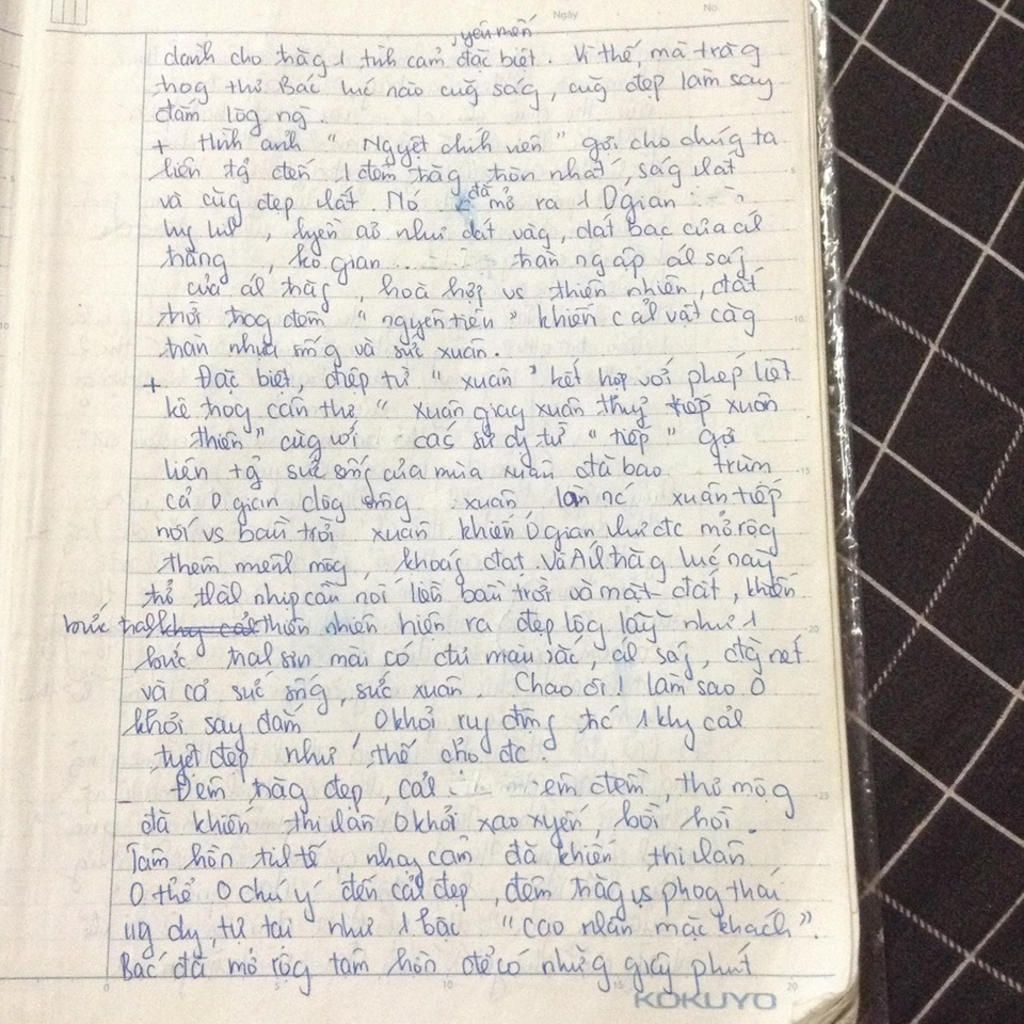 Ngày
No
yêu mến
dành cho trăg 1 tình cảm đặc biệt. Vì thế, mà trăg
trog thơ Bác lúc nào cũg ság, cũg đẹp làm say
đắm lòg ng
+ Hình ảnh " Nguyệt chính viên " gợi cho chúg ta
liên tg đến 1 đêm trăg tròn nhất, ság nhất
và cũg đẹp nhất. Nó đã mở ra 1 0 gian
, huyền ảo như dát vàg, dát bạc của ál
trăng , ko gian tràn ngập ál ság
của ál trăg , hoà hợp vs thiên nhiên, đất
trời trog đêm " nguyên tiêu " khiến cảl vật càg
tràn nhựa sống và sức xuân.
+ Đặc biệt, điệp từ " xuân " kết hợp với phép liệt
kê trog câu thơ " xuân giag xuân thuỷ tiếp xuân
thiên " cùg với các sử dg từ " tiếp " gợi
liên tg sức sống của mùa xuân đã bao trùm
cả 0 gian dòg sôg xuân làn nc xuân tiếp
nối vs bầu trời xuân khiến 0 gian như đc mở rộg
thêm mênh môg, khoág đạt. Và Ál trăg lúc này
trở thàl nhịp cầu nối liền bầu trời và mặt đất, khiến
bức tral thiên nhiên hiện ra đẹp lộg lẫy như 1
bức tral sơn mài có đủ màu sắc, ál ság, đg nét
và cả sức sống, sức xuân. Chao ôi! làm sao 0
khỏi say đắm 0 khỏi rug độg trc 1 khug cảl
tuyệt đẹp như thế cho đc.
- Đêm trăg đẹp, cảl êm đềm, thơ mộg
đã khiến thi nhân 0 khỏi xao xuyến, bồi hồi.
Tâm hồn til tế, nhạy cảm đã khiến thi nhân
0 thể 0 chú ý đến cảl đẹp, đêm trăg vs phog thái
ug dug, tự tại như 1 bậc " cao nhân mặc khách ".
Bác đã mở rộg tâm hồn để có nhữg giây phút
KOKUYO